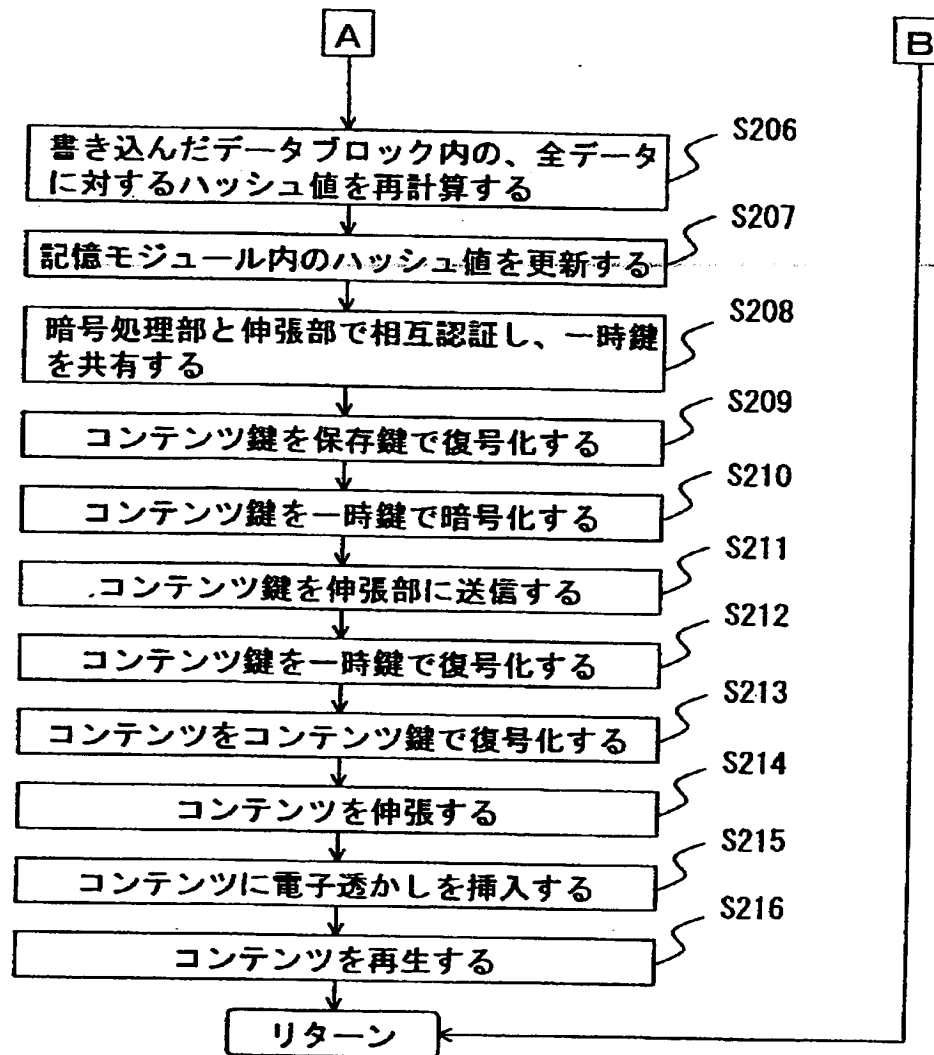 A
B
書き込んだデータブロック内の、全データ
に対するハッシュ値を再計算する
S206
記憶モジュール内のハッシュ値を更新する
S207
暗号処理部と伸張部で相互認証し、一時鍵
を共有する
S208
コンテンツ鍵を保存鍵で復号化する
S209
コンテンツ鍵を一時鍵で暗号化する
S210
コンテンツ鍵を伸張部に送信する
S211
コンテンツ鍵を一時鍵で復号化する
S212
コンテンツをコンテンツ鍵で復号化する
S213
コンテンツを伸張する
S214
コンテンツに電子透かしを挿入する
S215
コンテンツを再生する
S216
リターン